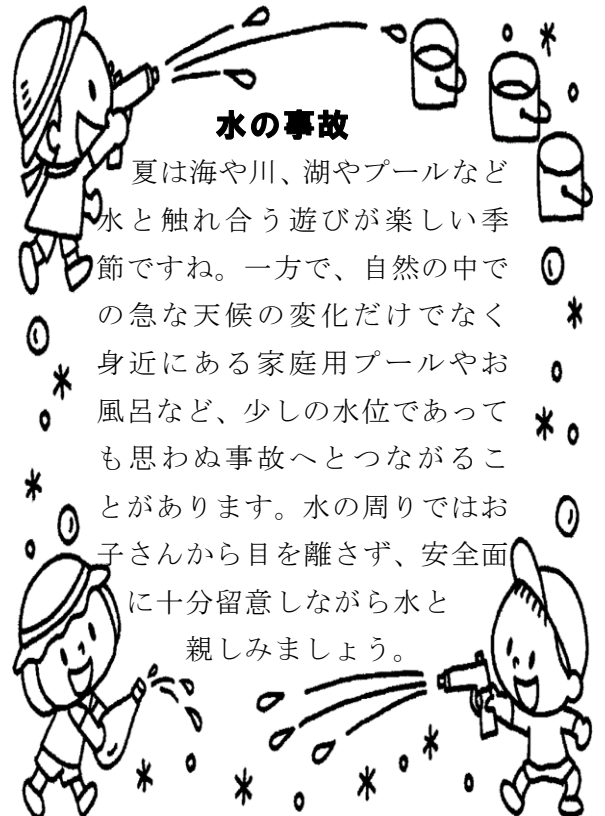 水の事故
夏は海や川、湖やプールなど
水と触れ合う遊びが楽しい季
節ですね。一方で、自然の中で
の急な天候の変化だけでなく
身近にある家庭用プールやお
風呂など、少しの水位であって
も思わぬ事故へとつながるこ
とがあります。水の周りではお
子さんから目を離さず、安全面
に十分留意しながら水と
親しみましょう。